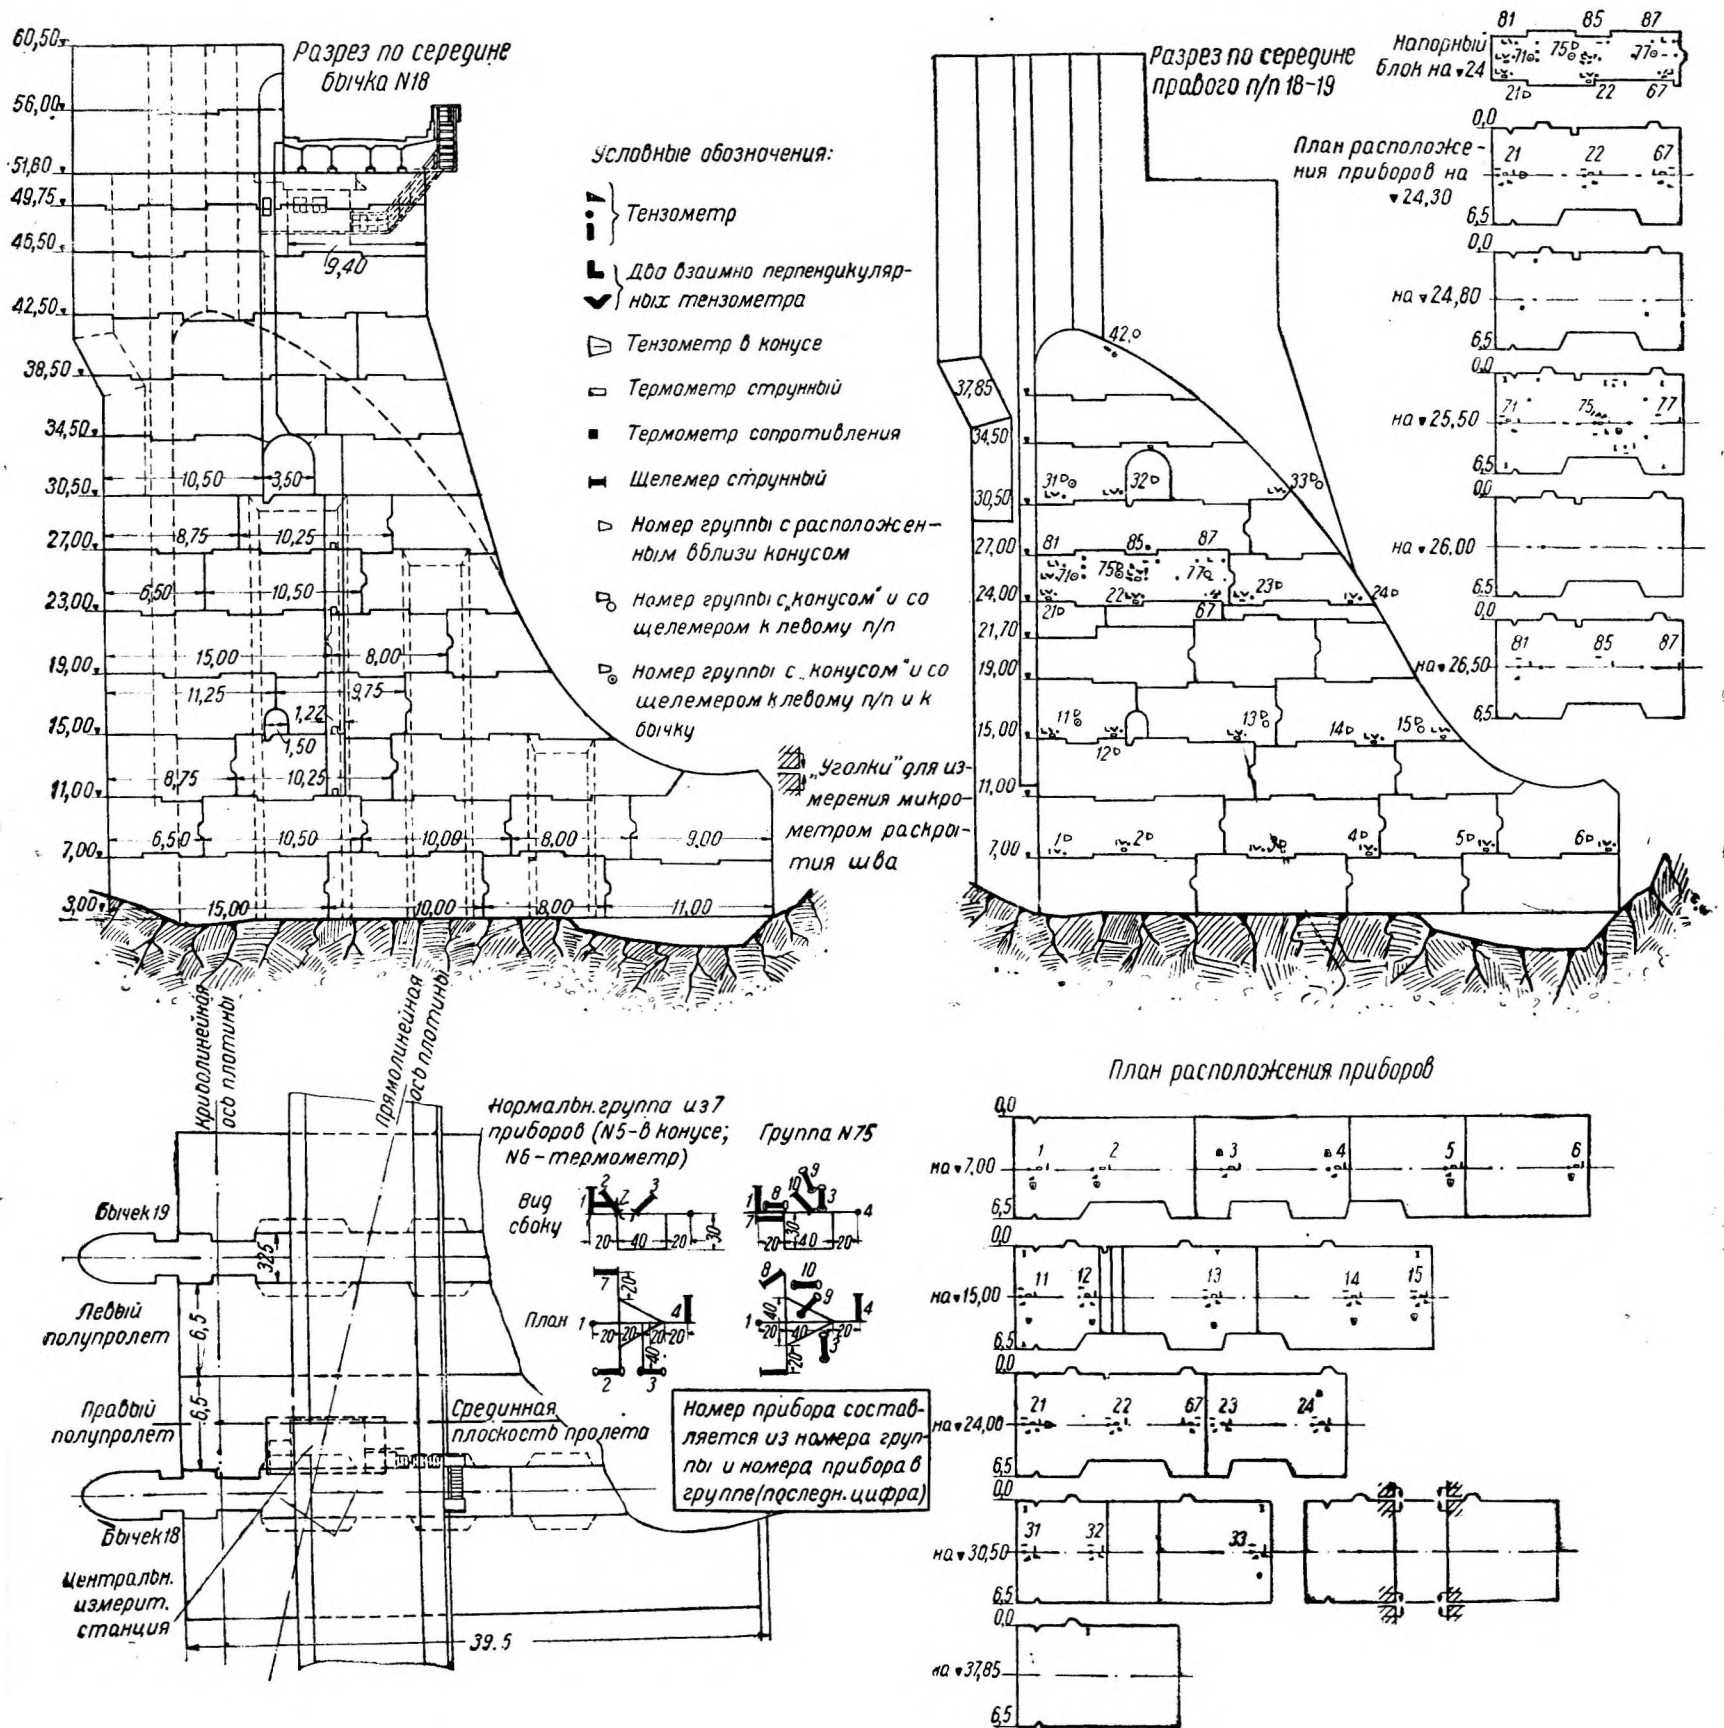 Разрез по середине
бычка N18
60,50
56,00
51,80
49,75
45,50
42,50
38,50
34,50
30,50
27,00
23,00
19,00
15,00
11,00
7,00
3,00
9,40
10,50 3,50
8,75 10,25
6,50 10,50
15,00 8,00
11,25 9,75
1,22
1,50
8,75 10,25
6,50 10,50 10,00 8,00 9,00
15,00 10,00 8,00 11,00
Условные обозначения:
Тензометр
Два взаимно перпендикуляр-
ных тензометра
Тензометр в конусе
Термометр струнный
Термометр сопротивления
Щелемер струнный
Номер группы с расположен-
ным вблизи конусом
Номер группы с „конусом" и со
щелемером к левому п/п
Номер группы с „конусом" и со
щелемером к левому п/п и к
бычку
„Уголки" для из-
мерения микро-
метром раскры-
тия шва
Разрез по середине
правого п/п 18-19
37,85
34,50
30,50
27,00
24,00
21,70
19,00
15,00
11,00
7,00
42
31 32 33
81 85 87
71 75 77
22 23 24
21 67
11 13 14 15
12
1 2 3 4 5 6
Напорный
блок на 24
81 85 87
71 75 77
21 22 67
План расположе-
ния приборов на
24,30
0,0
21 22 67
6,5
0,0
на 24,80
6,5
0,0
на 25,50
71 75 77
6,5
0,0
на 26,00
6,5
0,0
на 26,50
81 85 87
6,5
Криволинейная
ось плотины
Прямолинейная
ось плотины
Бычек 19
325
Левый
полупролет
6,5
Правый
полупролет
6,5
Срединная
плоскость пролета
Бычек 18
Центральн.
измерит.
станция
39.5
Нормальн. группа из 7
приборов (N5-в конусе;
N6-термометр)
Группа N75
Вид
сбоку
1 2 7 3
20 40 20 30
1 7 8 10 9 3 4
20 40 20 30
План
7 20
1 4
20 20 20 20
40
2 3
8 10
9
1 40 4
20 40 20
20 3
Номер прибора состав-
ляется из номера груп-
пы и номера прибора в
группе (последн. цифра)
План расположения приборов
0,0
на 7,00
1 2 3 4 5 6
6,5
0,0
на 15,00
11 12 13 14 15
6,5
0,0
на 24,00
21 22 67 23 24
6,5
0,0
на 30,50
31 32 33
6,5
0,0
на 37,85
6,5